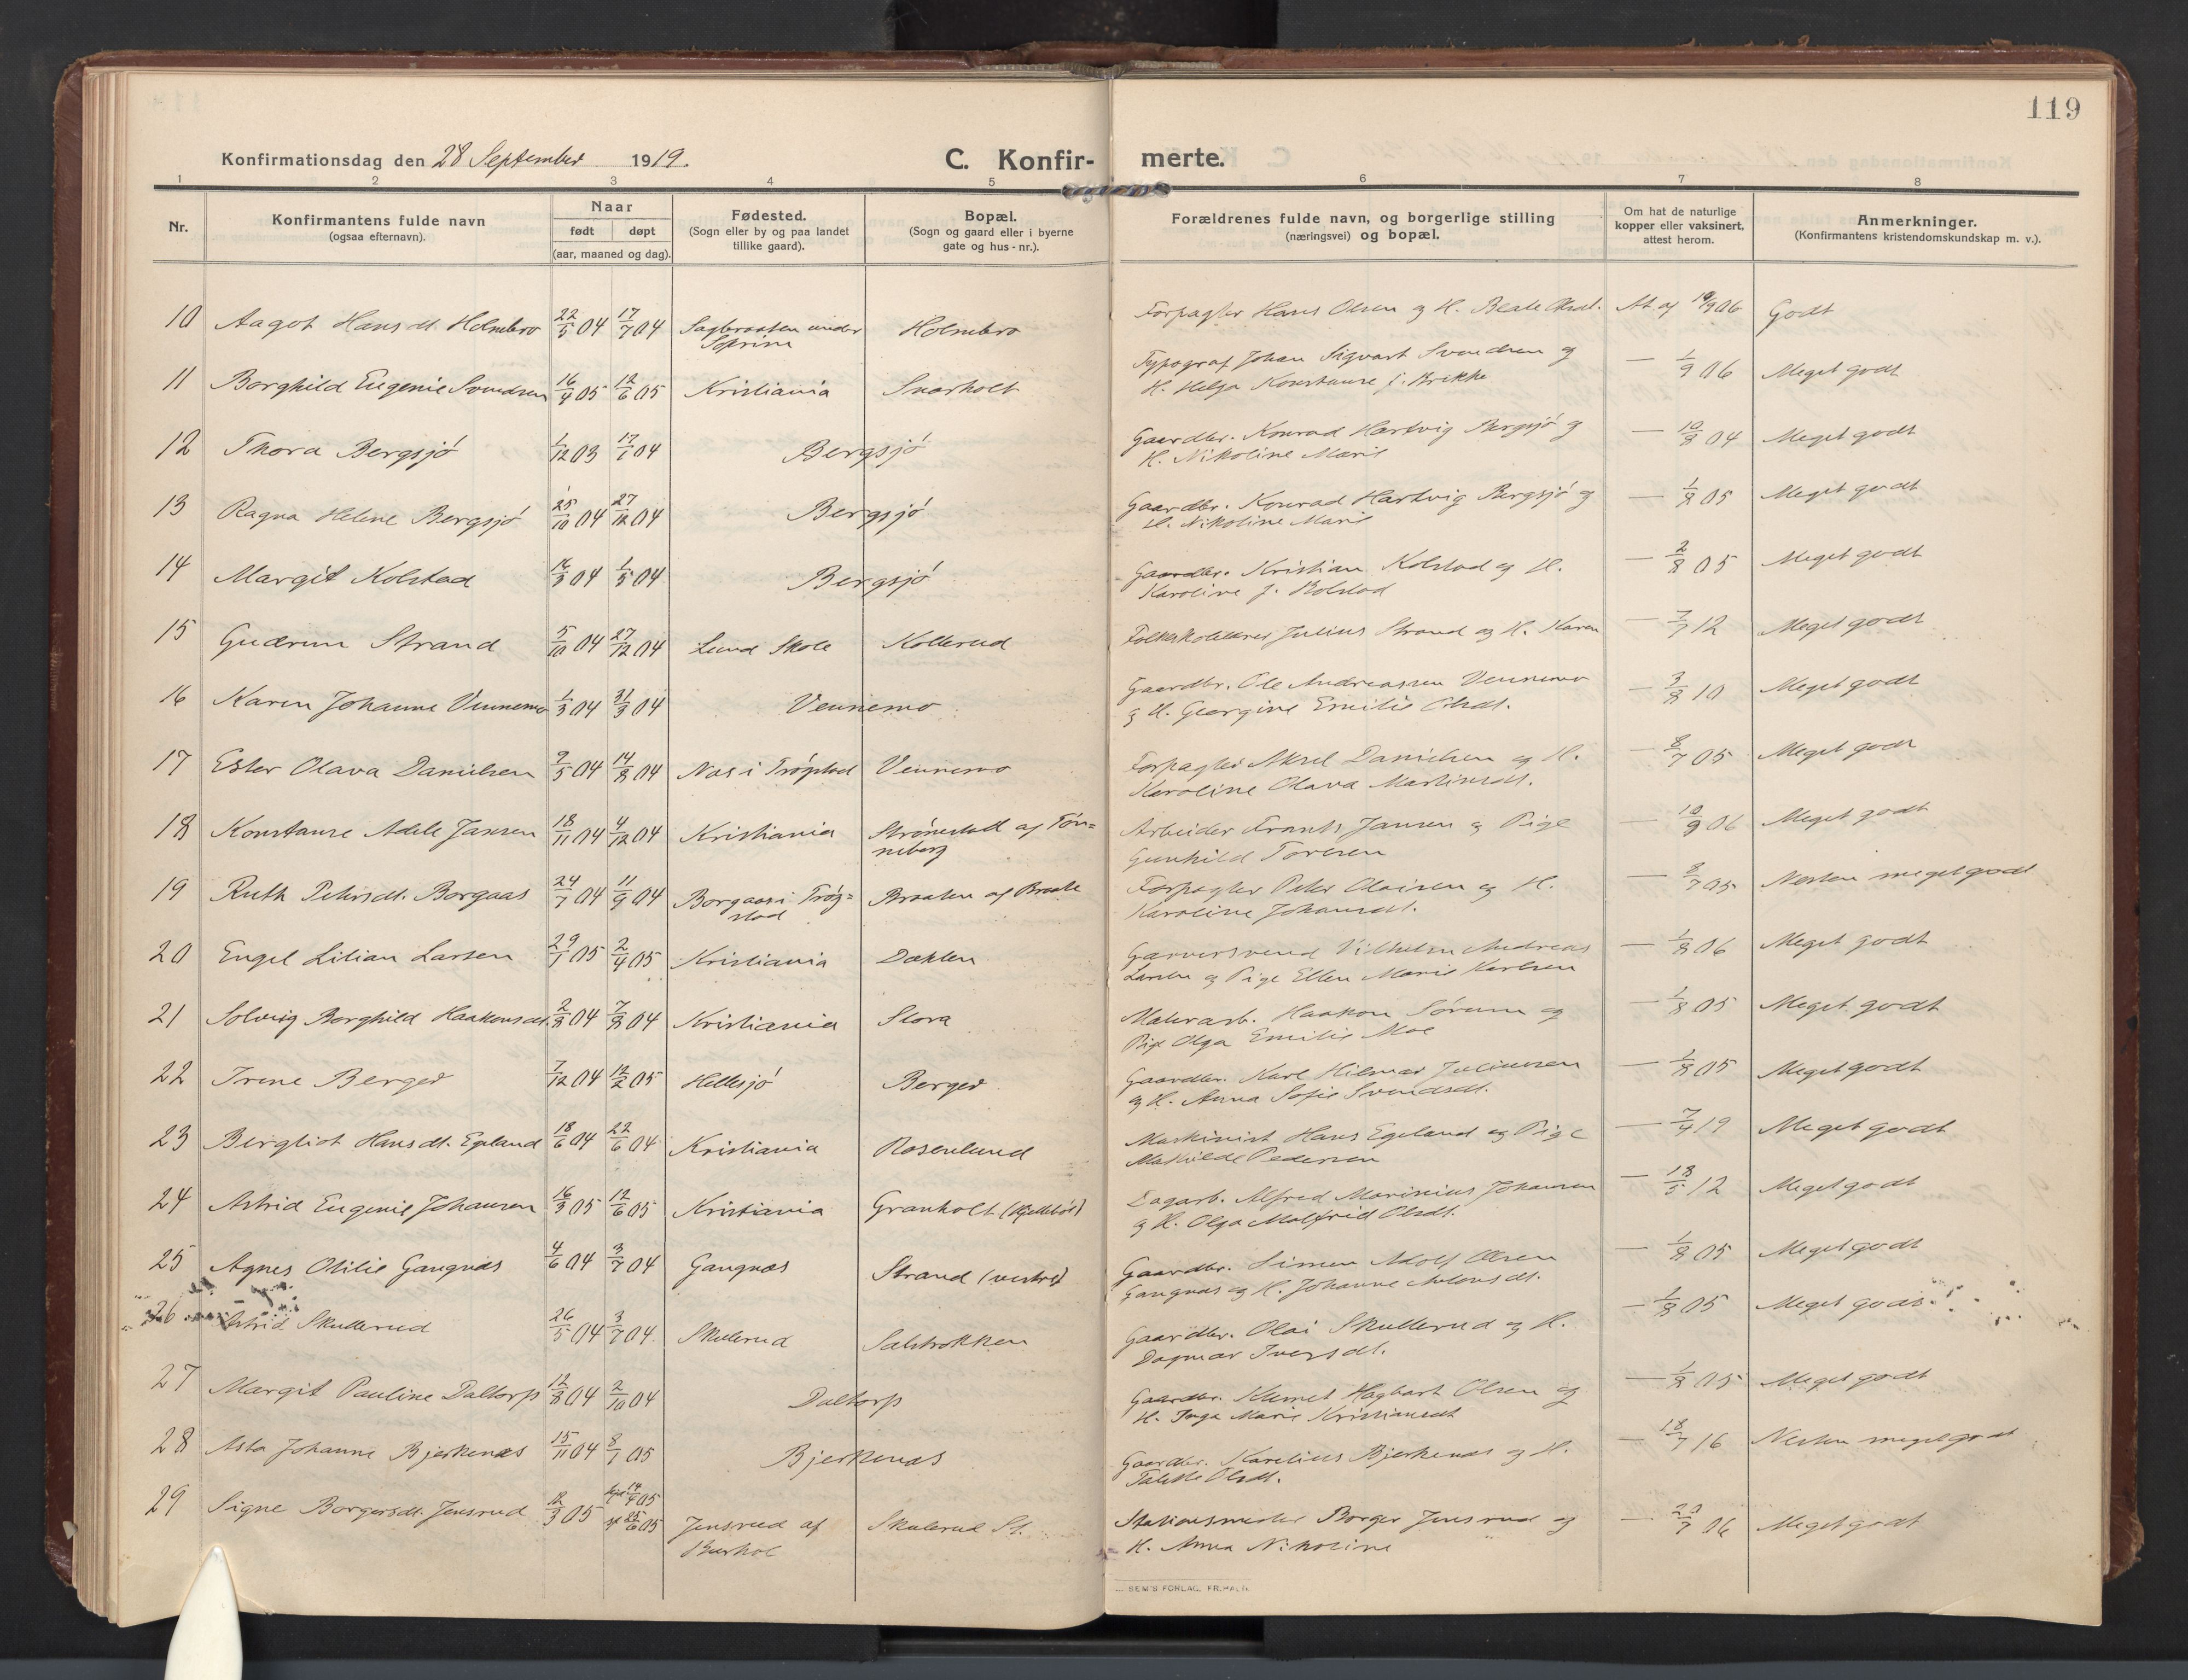 119
Konfirmationsdag den 28 September 1919.
C. Konfir- merte.
1 2 3 4 5 6 7 8
Nr.
Konfirmantens fulde navn
(ogsaa efternavn).
Naar
født døpt
(aar, maaned og dag).
Fødested.
(Sogn eller by og paa landet
tillike gaard).
Bopæl.
(Sogn og gaard eller i byerne
gate og hus-nr.).
Forældrenes fulde navn, og borgerlige stilling
(næringsvei) og bopæl.
Om hat de naturlige
kopper eller vaksinert,
attest herom.
Anmerkninger.
(Konfirmantens kristendomskundskap m. v.).
10 Aagot Hansdt. Holmbro 22/5 04 17/7 04 Sagbraaten under Holmbro Forpagter Hans Olsen og H. Beate Olsdt. At. af 19/9 06 Godt
11 Borghild Eugenie Svendsen 16/4 05 12/6 05 Kristiania Snarholt Typograf Johan Sigvart Svendsen og — 1/9 06 Meget godt
H. Helga Konstanse f. Brekke
12 Thora Bergsjó 1/12 03 17/1 04 Bergsjó Gaardbr. Konrad Hartvig Bergsjó og — 10/8 04 Meget godt
H. Nikoline Marie
13 Ragna Helene Bergsjó 25/10 04 27/12 04 Bergsjó Gaardbr. Konrad Hartvig Bergsjó og — 1/8 05 Meget godt
H. Nikoline Marie
14 Margit Kolstad 16/3 04 1/5 04 Bergsjó Gaardbr. Kristian Kolstad og H. — 2/8 05 Meget godt
Karoline f. Kolstad
15 Gudrun Strand 5/10 04 27/12 04 Lund Skole Kollerud Folkeskolelærer Julius Strand og H. Karen — 7/7 12 Meget godt
16 Karen Johanne Vennemo 1/3 04 31/3 04 Vennemo Gaardbr. Ole Andreassen Vennemo — 3/8 10 Meget godt
og H. Georgine Emilie Olsdt.
17 Ester Olava Danielsen 9/5 04 14/8 04 Nas i Trógstad Vennemo Forpagter Aksel Danielsen og H. — 8/7 05 Meget godt
Karoline Olava Martinsdt.
18 Konstanse Adele Jansen 18/11 04 4/12 04 Kristiania Strónestad af Tón=
neberg
Arbeider Frants Jansen og Pige — 10/9 06 Meget godt
Gunhild Toresen
19 Ruth Petersdt. Borgaas 24/7 04 11/9 04 Borgaas i Tróg=
stad
Braaten af Braate Forpagter Peter Olaisen og H. — 8/7 05 Nesten meget godt
Karoline Johansdt.
20 Engel Lilian Larsen 29/1 05 2/4 05 Kristiania Dæhlen Garversvend Vilhelm Andreas — 1/8 06 Meget godt
Larsen og Pige Ellen Marie Karlsen
21 Solveig Borghild Haakonsdt. 2/3 04 7/8 04 Kristiania Slora Malerarb. Haakon Sórum og — 1/8 05 Meget godt
Pige Olga Emilie Moe
22 Irene Berger 7/12 04 12/2 05 Hellesjó Berger Gaardbr. Karl Hilmar Juliussen — 1/8 05 Meget godt
og H. Anna Sofie Svendsdt.
23 Bergliot Hansdt. Egeland 18/6 04 22/6 04 Kristiania Rosenlund Maskinist Hans Egeland og Pige — 7/4 19 Meget godt
Mathilde Pedersen
24 Astrid Eugenie Johansen 16/3 05 12/6 05 Kristiania Granholt Dagarb. Alfred Marinius Johansen — 18/5 12 Meget godt
og H. Olga Malfrid Olsdt.
25 Agnes Otilie Gangnæs 4/6 04 3/7 04 Gangnæs Strand (vestre) Gaardbr. Simen Adolf Olsen — 1/8 05 Meget godt
Gangnæs og H. Johanne Antonsdt.
26 Astrid Skullerud 26/5 04 3/7 04 Skulerud Sælstrokken Gaardbr. Olai Skullerud og H. — 1/8 05 Meget godt
Dagmar Iversdt.
27 Margit Pauline Daltorp 12/8 04 2/10 04 Daltorp Gaardbr. Klemet Hagbart Olsen og — 1/8 05 Meget godt
H. Inga Marie Kristiansdt
28 Asta Johanne Bjerkenæs 15/11 04 8/1 05 Bjerkenæs Gaardbr. Karelius Bjerkenæs og H. — 18/7 16 Nesten meget godt
Talette Olsdt.
29 Signe Borgersdt. Jensrud 12/3 05 14/4 05 25/6 05 Jensrud af Skulerud St. Stationsmester Borger Jensrud og — 23/7 06 Meget godt
H. Anna Nikoline
SEM'S FORLAG, FR.HALD.